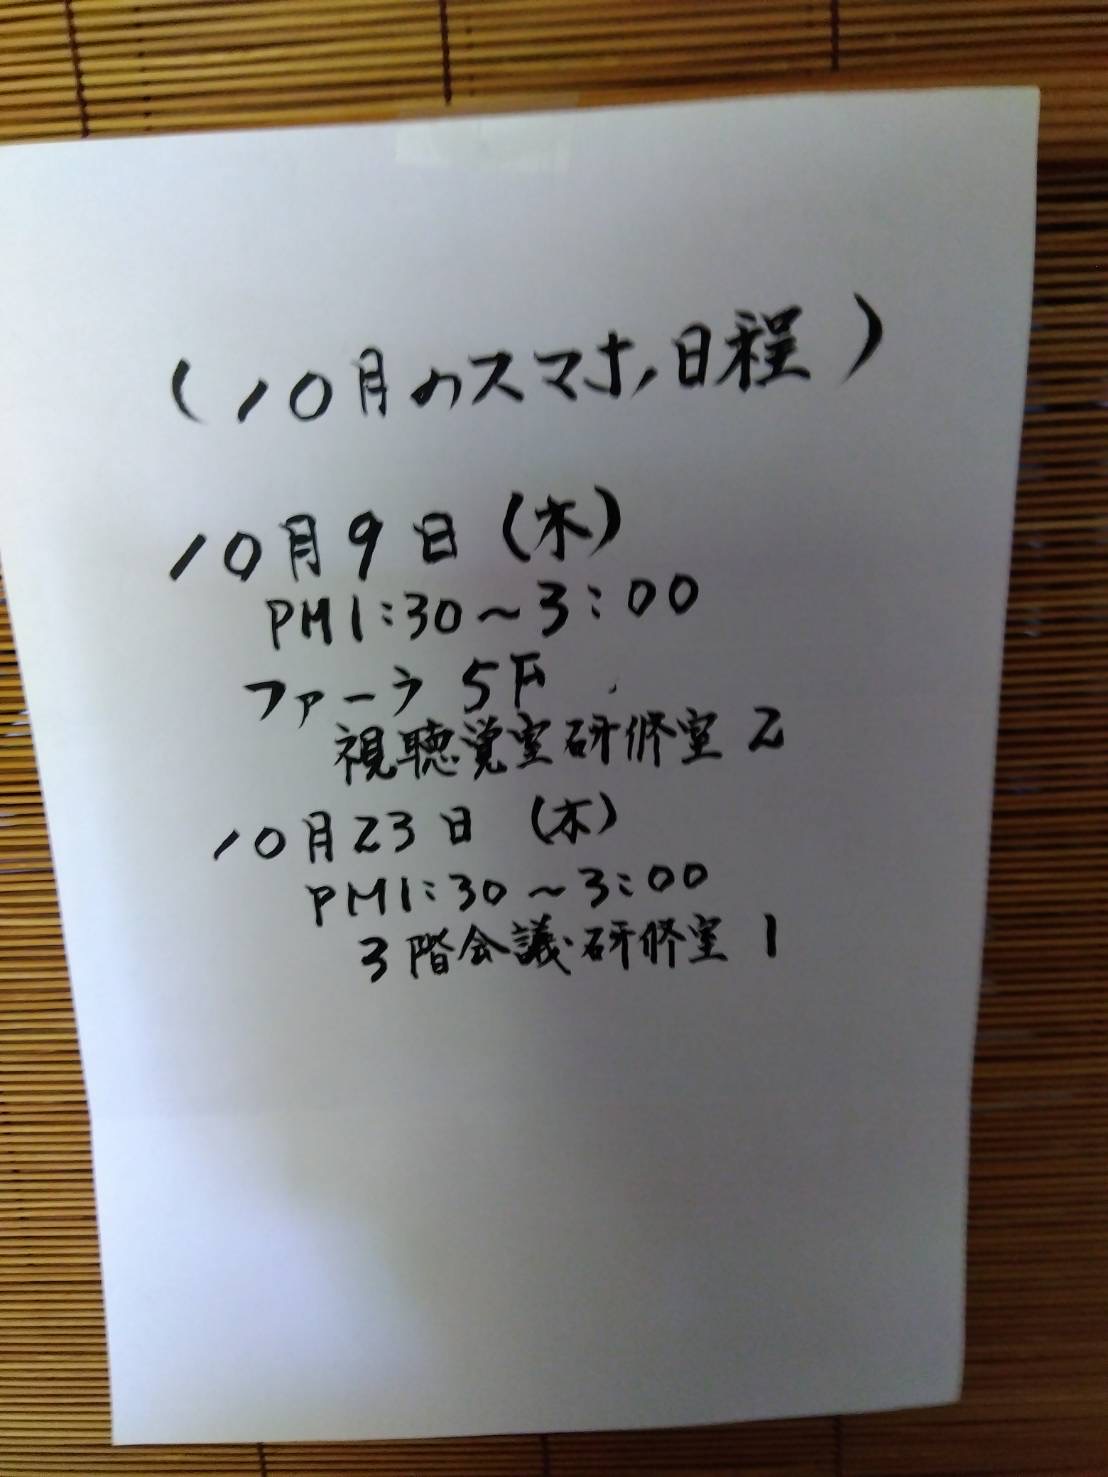 (10月のスマホ,日程)
10月9日(木)
PM1:30~3:00
ファーラ 5F
視聴覚室研修室 2
10月23日 (木)
PM1:30~3:00
3階会議・研修室 1